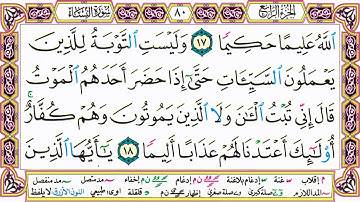 الجزء الرابع ٨٠ سورة النساء
ٱللَّهُ عَلِيمًا حَكِيمًا ١٧ وَلَيْسَتِ ٱلتَّوْبَةُ لِلَّذِينَ
يَعْمَلُونَ ٱلسَّيِّـَٔاتِ حَتَّىٰٓ إِذَا حَضَرَ أَحَدَهُمُ ٱلْمَوْتُ
قَالَ إِنِّى تُبْتُ ٱلْـَٰٔنَ وَلَا ٱلَّذِينَ يَمُوتُونَ وَهُمْ كُفَّارٌ ۚ
أُو۟لَـٰٓئِكَ أَعْتَدْنَا لَهُمْ عَذَابًا أَلِيمًا ١٨ يَـٰٓأَيُّهَا ٱلَّذِينَ